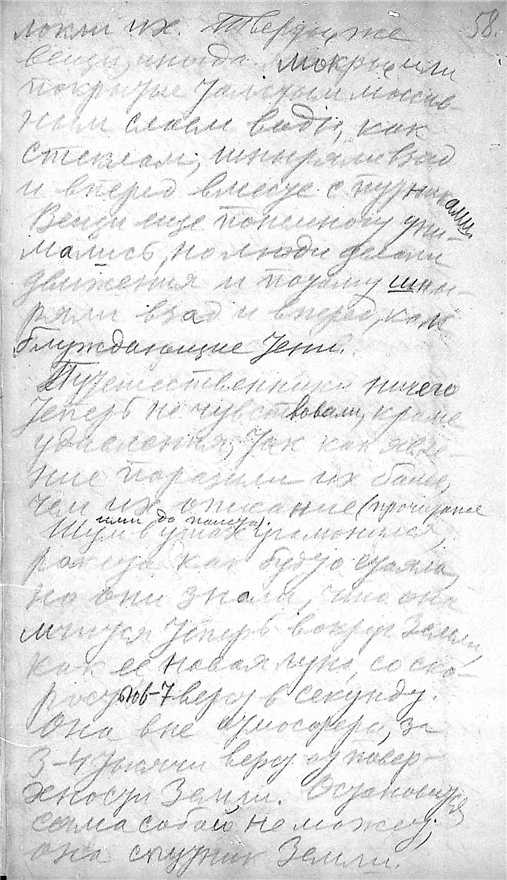 58.
локли их. Твердые же
вещи, иногда мокрые или
покрытые толстым массив-
ным слоем воды, как
стеклом, шныряли взад
и вперед вместе с путниками.
Вещи еще понемногу уни-
мались, но люди делали
движения и потому шны-
ряли взад и вперед, как
блуждающие тени.
Путешественники ничего
теперь не чувствовали, кроме
удивления, так как явле-
ние поразили их более,
чем их описание (прочитанное
ими до полета).
Шум в ушах угомонился,
ракета как будто стояла,
но они знали, что она
мчится теперь вокруг Земли,
как ее новая луна, со ско-
ростью 6-7 верст в секунду.
Она вне атмосферы, за
3-4 тысячи верст от повер-
хности Земли. Остановиться
сама собой не может,
она спутник Земли.